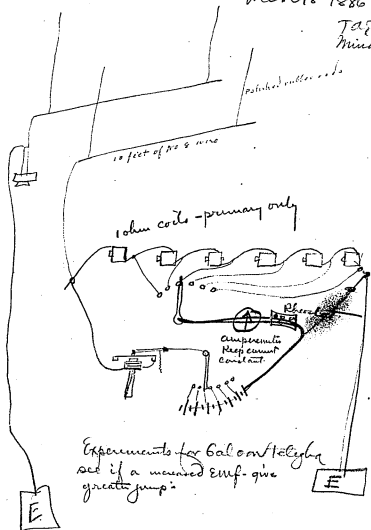 1886
polished rubber rods
10 feet of No 8 wire
1 ohm coils - primary only
Rheostat
amperemeter
Keep current
constant.
Experiments for
see if a increased EMF - give
greater jump -
E
E